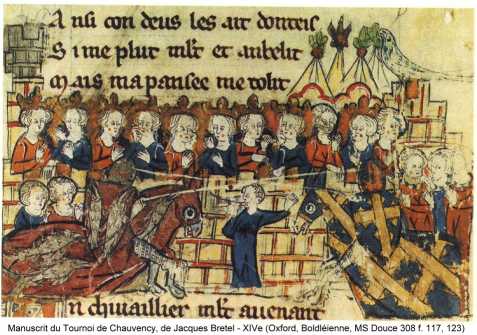 A nsi con deus les ait donteis
S i me plut mlt et anbelit
M ais ma pansee me tolit
n chivaillier mlt auenant
Manuscrit du Tournoi de Chauvency, de Jacques Bretel - XIVe (Oxford, Boldléienne, MS Douce 308 f. 117, 123)